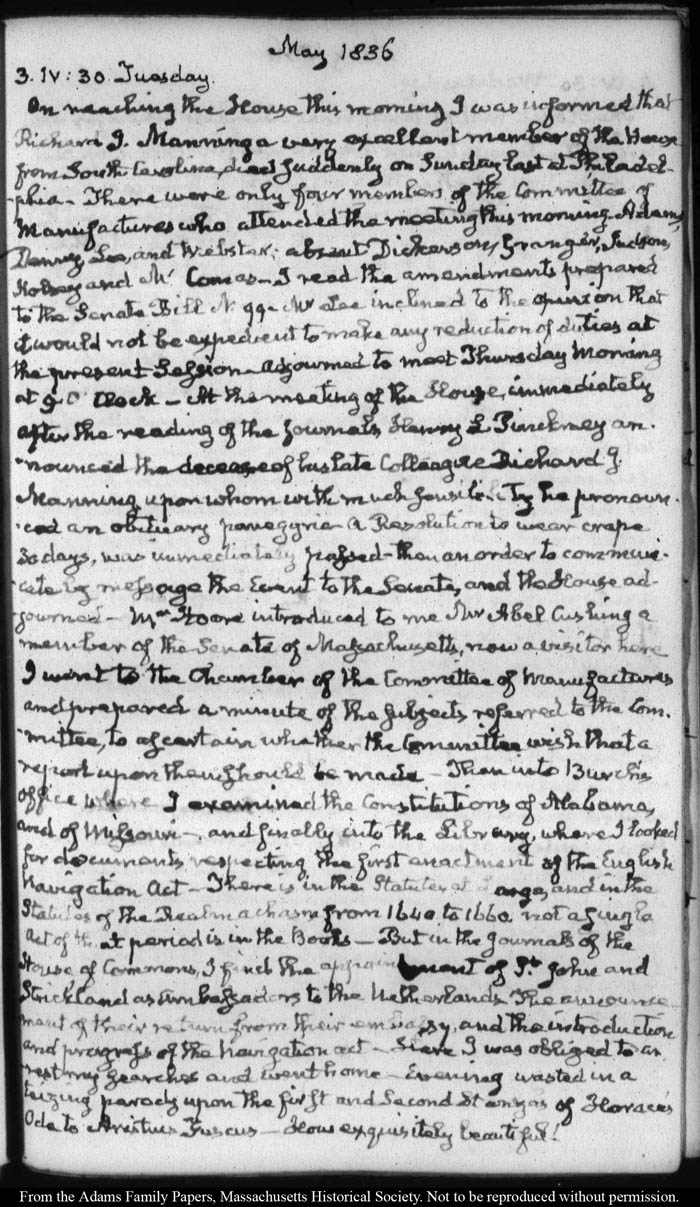 May 1836
3. IV: 30. Tuesday.
On reaching the House this morning I was informed that
Richard I. Manning a very excellent member of the House
from South Carolina, died suddenly on Sunday last at Philadel-
-phia - There were only four members of the Committee of
Manufactures who attended the meeting this morning. Adams,
Denny, Lee, and Webster; absent Dickerson, Granger, Judson,
and Mc Comas - I read the amendments prepared
to the Senate Bill N. 99 - Mr Lee inclined to the opinion that
it would not be expedient to make any reduction of duties at
the present Session - Adjourned to meet Thursday Morning
at 9. O'Clock - At the meeting of the House, immediately
after the reading of the Journals Henry L. Pinckney an-
-nounced the decease of his late Colleague Richard I.
Manning, upon whom with much sensibility he pronoun-
-ced an obituary panegyric - A Resolution to wear crape
30 days, was immediately passed - then an order to communi-
-cate by message the Event to the Senate, and the House ad-
-journed - introduced to me Mr Abel Cushing a
member of the Senate of Massachusetts, now a visitor here
I went to the Chamber of the Committee of Manufactures
and prepared a minute of the subjects referred to the Com-
-mittee, to ascertain whether the Committee wish that a
report upon them should be made - Then into Burch's
office where I examined the Constitutions of Alabama,
and of Missouri -, and finally into the Library, where I looked
for documents respecting the first enactment of the English
Navigation Act - There is in the Statutes at Large, and in the
Statutes of the Realm a chasm from 1640 to 1660. not a single
Act of that period is in the Books - But in the Journals of the
House of Commons, I find the appointment of St. John and
Strickland as Ambassadors to the Netherlands. The announce-
ment of their return from their embassy, and the introduction
and progress of the Navigation act - Here I was obliged to ar-
rest my searches and went home - Evening wasted in a
teizing parody upon the first and second Stanzas of Horace's
Ode to Aristius Fuscus - How exquisitely beautiful!
From the Adams Family Papers, Massachusetts Historical Society. Not to be reproduced without permission.